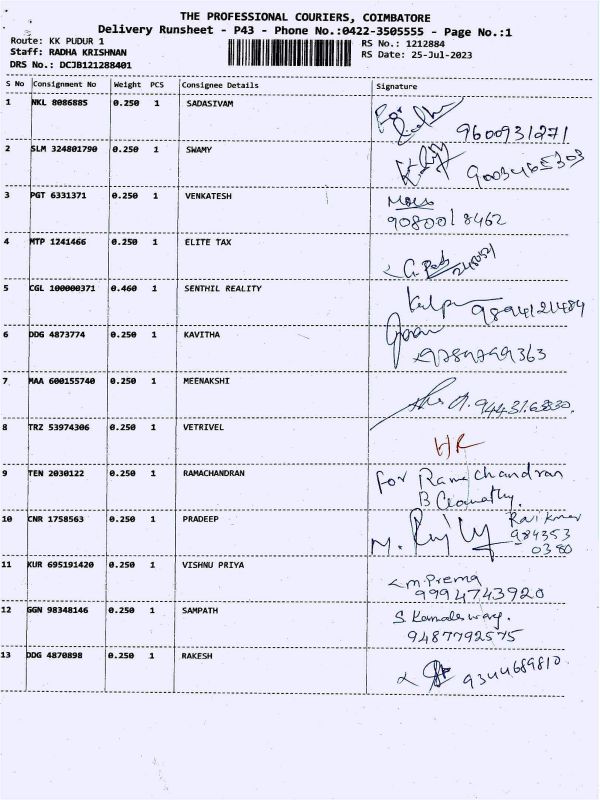 THE PROFESSIONAL COURIERS, COIMBATORE
Delivery Runsheet - P43 - Phone No.:0422-3505555 - Page No.:1
Route: KK PUDUR 1
RS No.: 1212884
Staff: RADHA KRISHNAN
RS Date: 25-Jul-2023
DRS No.: DCJB121288401
S No Consignment No Weight PCS Consignee Details Signature
1 NKL 8086885 0.250 1 SADASIVAM
For
9600931271
2 SLM 324801790 0.250 1 SWAMY
9003465303
3 PGT 6331371 0.250 1 VENKATESH
9080018462
4 MTP 1241466 0.250 1 ELITE TAX
5 CGL 100000371 0.460 1 SENTHIL REALITY
9894121484
6 DDG 4873774 0.250 1 KAVITHA
9789799363
7 MAA 600155740 0.250 1 MEENAKSHI
8 TRZ 53974306 0.250 1 VETRIVEL
HR
9 TEN 2030122 0.250 1 RAMACHANDRAN
for Rama chandran
B Gomathy.
10 CNR 1758563 0.250 1 PRADEEP
M. Ravi kumar
984353
0380
11 KUR 695191420 0.250 1 VISHNU PRIYA
m.Prema
9994743920
12 GGN 98348146 0.250 1 SAMPATH
S. Kamaleswary.
9487792575
13 DDG 4870898 0.250 1 RAKESH
9344689810